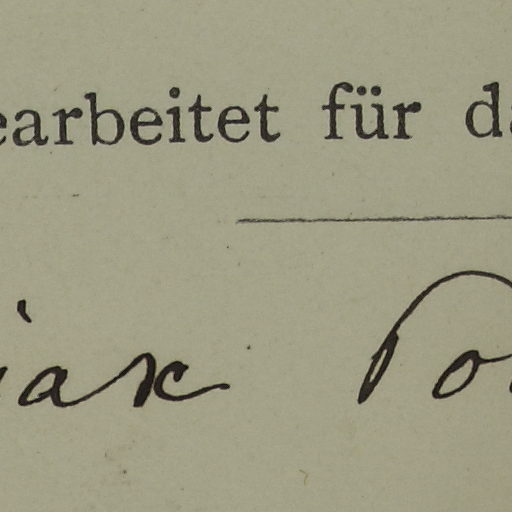 earbeitet für da
iax Po